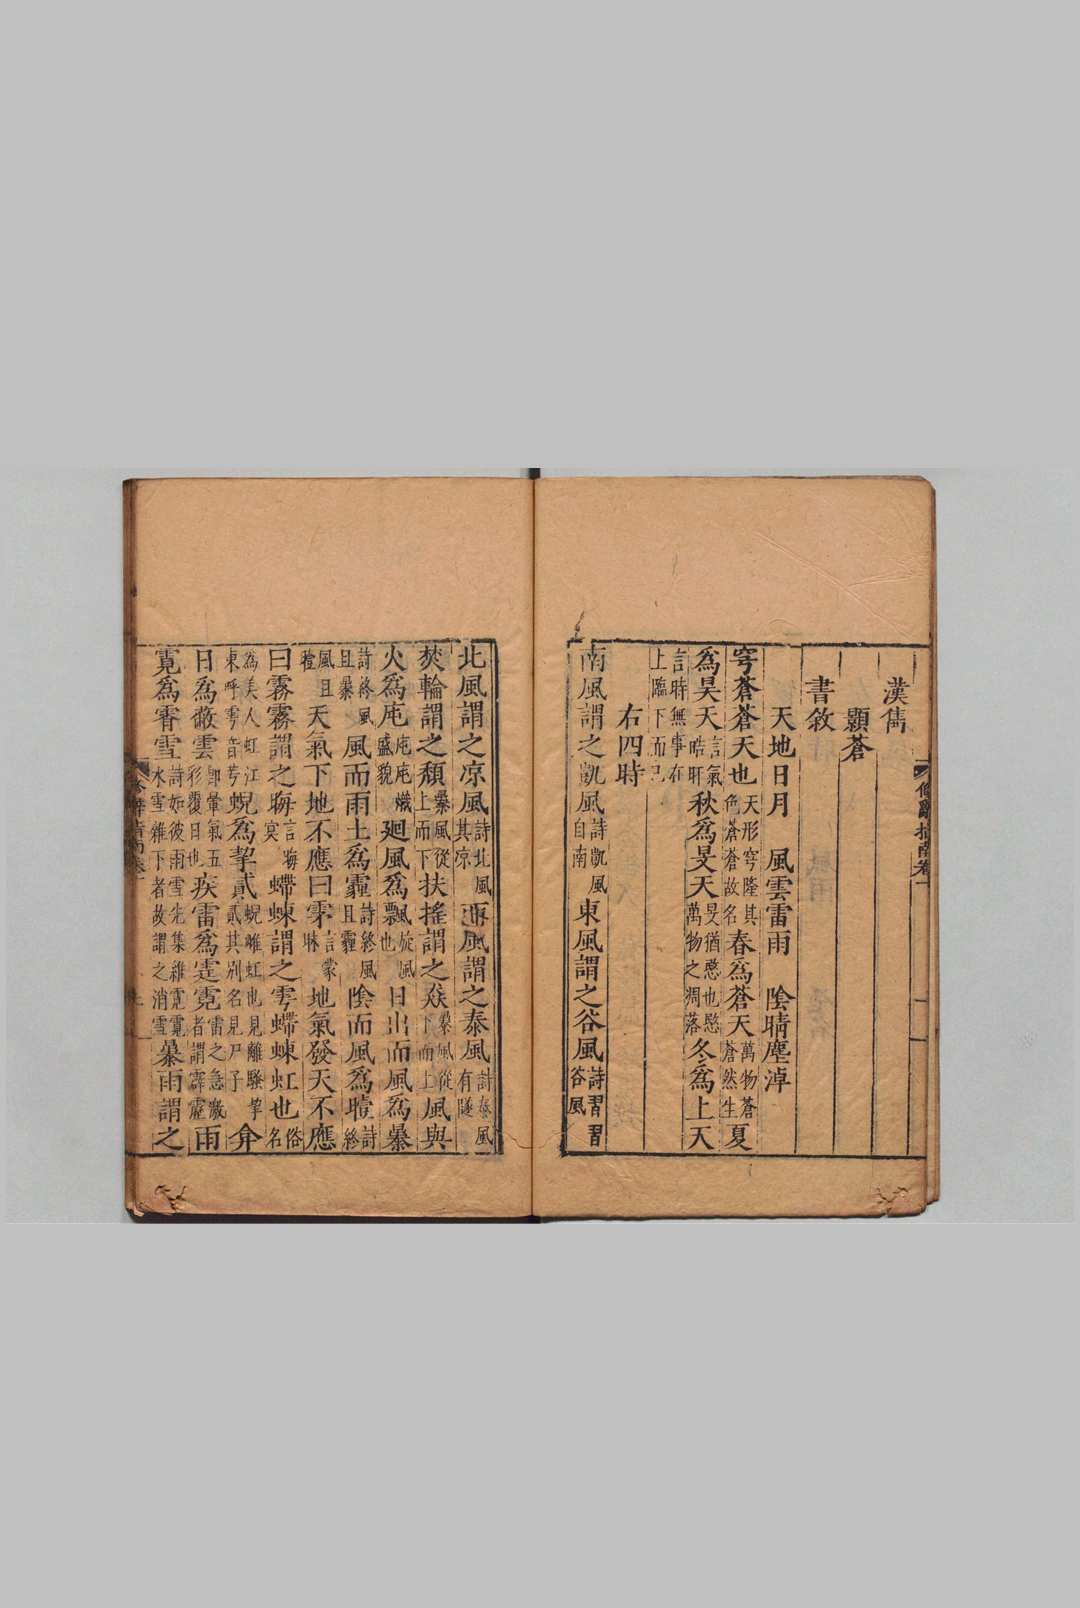 漢雋
顥蒼
書敘
天地日月　風雲雷雨　陰晴塵淖
穹蒼蒼天也天形穹隆其色蒼蒼故名春為蒼天萬物蒼蒼然生夏
為昊天言氣晧旰秋為旻天旻猶愍也愍萬物之凋落冬為上天
言時無事在上臨下而已
右四時
南風謂之凱風詩凱風自南東風謂之谷風詩習習谷風
北風謂之涼風詩北風其涼西風謂之泰風詩泰風有隧
焚輪謂之頹暴風從上而下扶搖謂之猋暴風從下而上風與
火為庉庉庉熾盛貌廻風為飄旋風也日出而風為暴
詩終風且暴風而雨土為霾詩終風且霾陰而風為曀詩終
風且曀天氣下地不應曰雺言蒙昧地氣發天不應
曰霧霧謂之晦言晦冥螮蝀謂之雩螮蝀虹也俗名
為美人虹江東呼雩音芌蜺為挈貳蜺雌虹也見離騷挈貳其別名見尸子弇
日為蔽雲即暈氣五彩覆日也疾雷為霆霓雷之急激者謂霹靂雨
霓為霄雪詩如彼雨雪先集維霓霓水雪雜下者故謂之消雪暴雨謂之